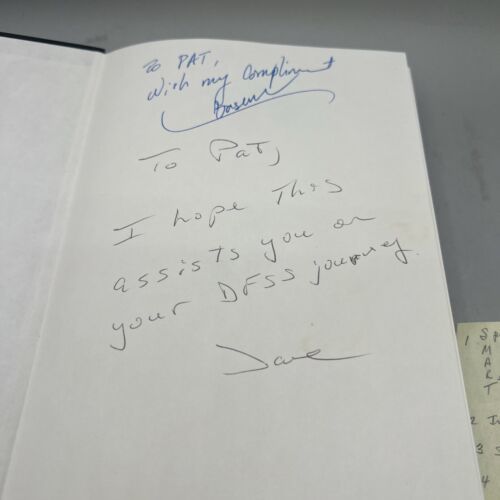 To PAT,
With my Compliment
Basem
To PaT,
I hope This
assists you on
your DFSS journey.
Dave
1 S
M
A
R
T
2
3
4